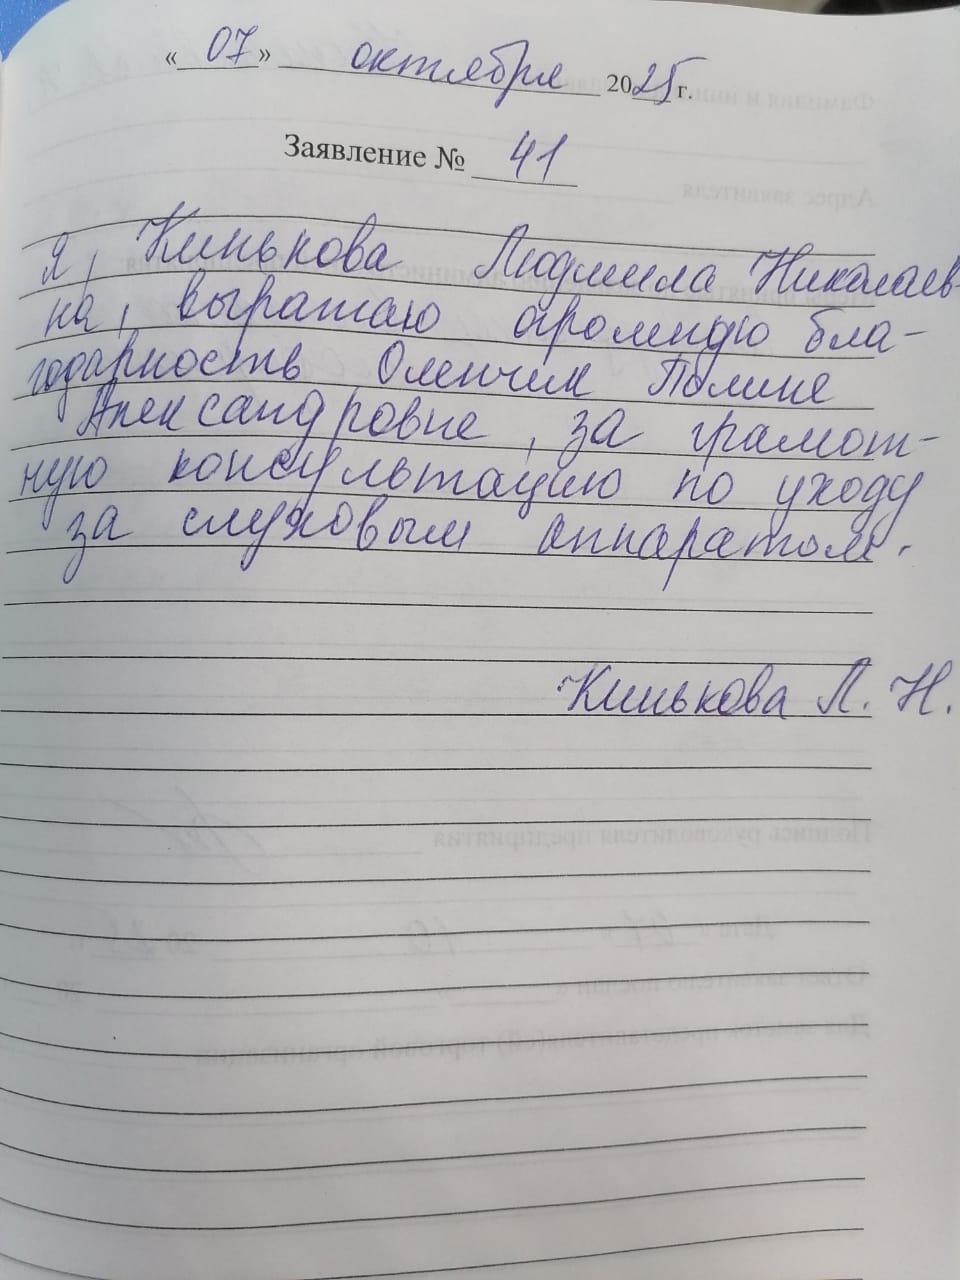 « 07 » октября 2025 г.
Заявление № 41
Я, Кинькова Людмила Николаев-
на, выражаю огромную бла-
годарность Оленчик Полине
Александровне, за грамот-
ную консультацию по уходу
за слуховым аппаратом.
Кинькова Л. Н.